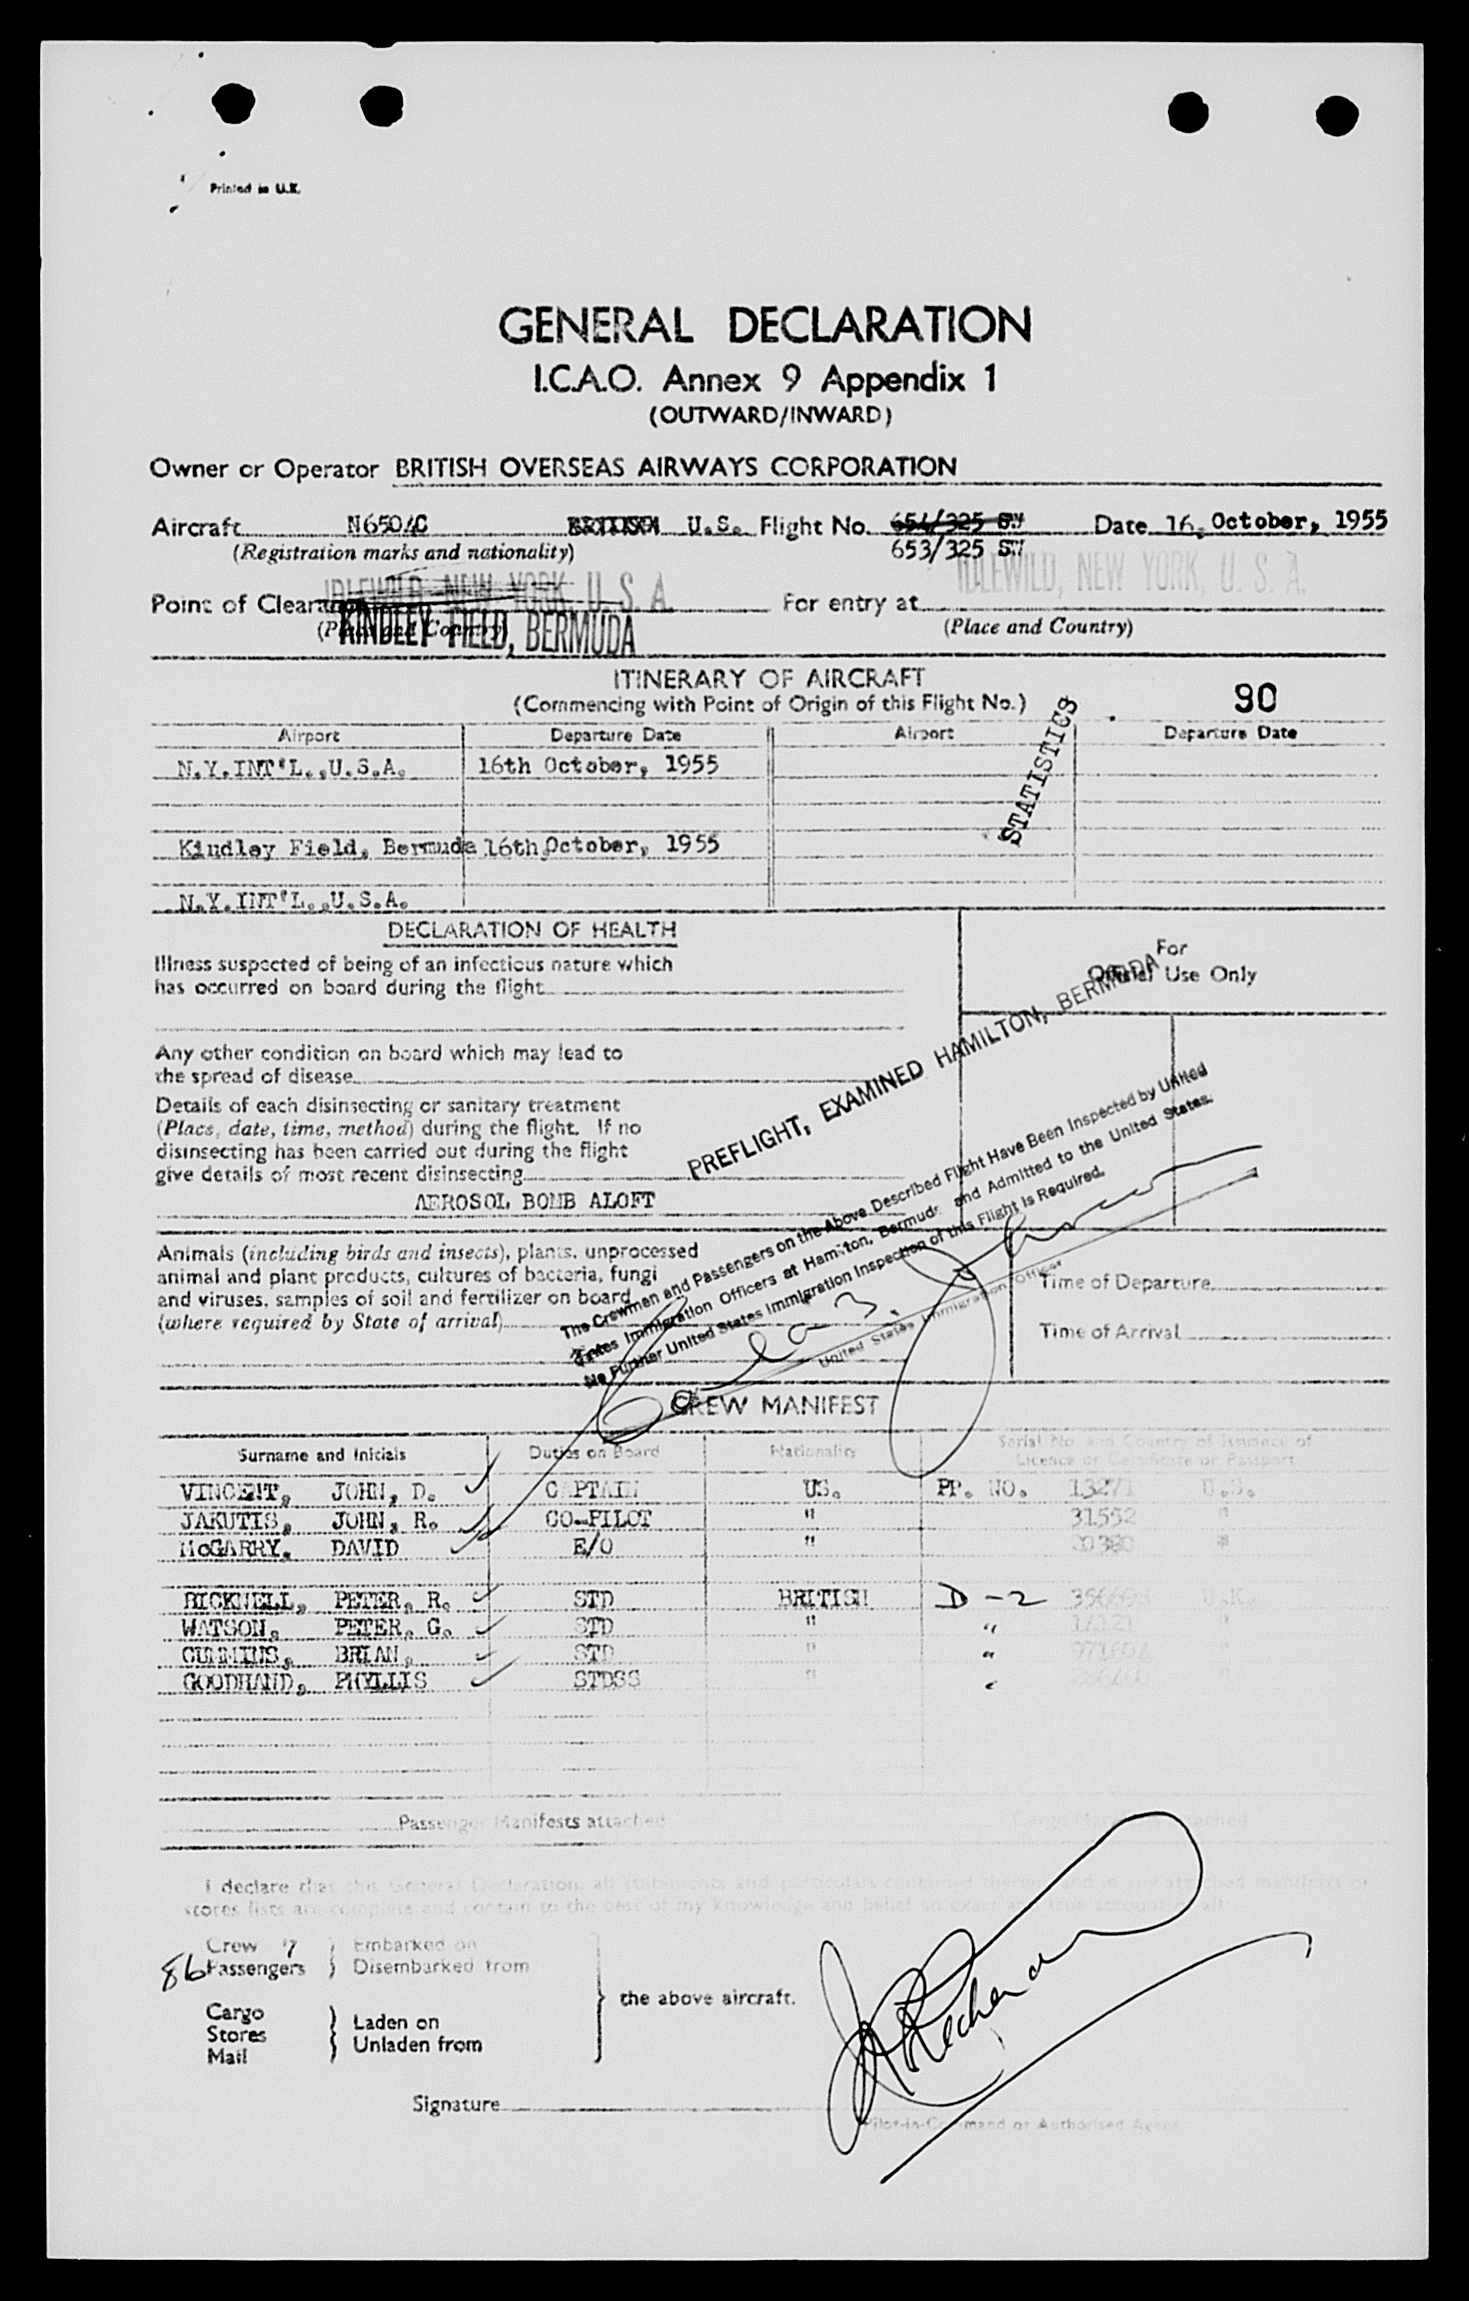 Printed in U.K.
GENERAL DECLARATION
I.C.A.O. Annex 9 Appendix 1
(OUTWARD/INWARD)
Owner or Operator BRITISH OVERSEAS AIRWAYS CORPORATION
Aircraft N6504C BRITISH U.S. Flight No. 654/325 SW Date 16, October, 1955
(Registration marks and nationality) 653/325 SW
IDLEWILD, NEW YORK, U. S. A. IDLEWILD, NEW YORK, U. S. A.
Point of Clearance For entry at
(Place and Country) KINDLEY FIELD, BERMUDA (Place and Country)
ITINERARY OF AIRCRAFT
(Commencing with Point of Origin of this Flight No.)
90
STATISTICS
Airport Departure Date Airport Departure Date
N.Y.INT'L.,U.S.A. 16th October, 1955
Kindley Field, Bermuda 16th October, 1955
N.Y.INT'L.,U.S.A.
DECLARATION OF HEALTH
For
Official Use Only
Illness suspected of being of an infectious nature which
has occurred on board during the flight
Any other condition on board which may lead to
the spread of disease
Details of each disinsecting or sanitary treatment
(Place, date, time, method) during the flight. If no
disinsecting has been carried out during the flight
give details of most recent disinsecting
AEROSOL BOMB ALOFT
PREFLIGHT, EXAMINED HAMILTON, BERMUDA
The Crewmen and Passengers on the Above Described Flight Have Been Inspected by United
States Immigration Officers at Hamilton, Bermuda and Admitted to the United States.
No Further United States Immigration Inspection of this Flight Is Required.
United States Immigration Officer
Animals (including birds and insects), plants, unprocessed
animal and plant products, cultures of bacteria, fungi
and viruses, samples of soil and fertilizer on board
(where required by State of arrival)
Time of Departure
Time of Arrival
CREW MANIFEST
Surname and Initials Duties on Board Nationality Serial No. and Country of Issuance of
Licence or Certificate or Passport
VINCENT, JOHN, D. CAPTAIN US. PP. NO. 13271 U.S.
JAKUTIS, JOHN, R. CO-PILOT " 31552 "
McGARRY, DAVID E/O " "
BICKNELL, PETER, R. STD BRITISH D-2 U.K.
WATSON, PETER, G. STD " " "
CUMMINS, BRIAN, STD " " "
GOODHAND, PHYLLIS STDSS " " "
Passenger Manifests attached Cargo Manifests attached
I declare that this General Declaration, all statements and particulars contained therein and in any attached manifests or
stores lists are complete and contain to the best of my knowledge and belief an exact and true account of all:
Crew 7 Embarked on
86 Passengers Disembarked from
the above aircraft.
Cargo
Stores Laden on
Mail Unladen from
Signature
Pilot-in-Command or Authorised Agent